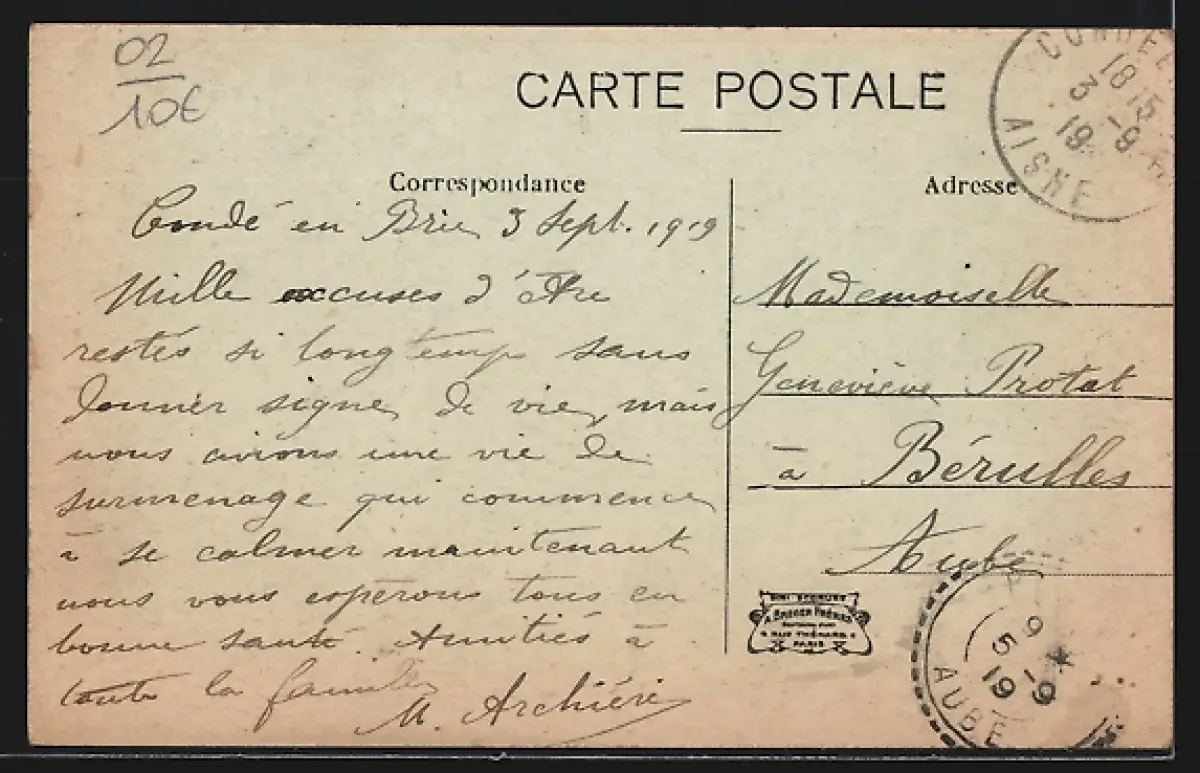 02
10€
CARTE POSTALE
Correspondance
Condé en Brie 3 Sept. 1919
Mille excuses d'être
restés si longtemps sans
donner signe de vie, mais
nous avions une vie de
surmenage qui commence
à se calmer maintenant
nous vous espérons tous en
bonne santé. Amitiés à
toute la famille
M. Archiéri
Adresse
Mademoiselle
Geneviève Protat
à Bérulles
Aube
CONDÉ
18 15
3 - 9
19
AISNE
A. BREGER FRÈRES
9 RUE THÉNARD 9
PARIS
9 *
5 - 9
19
AUBE